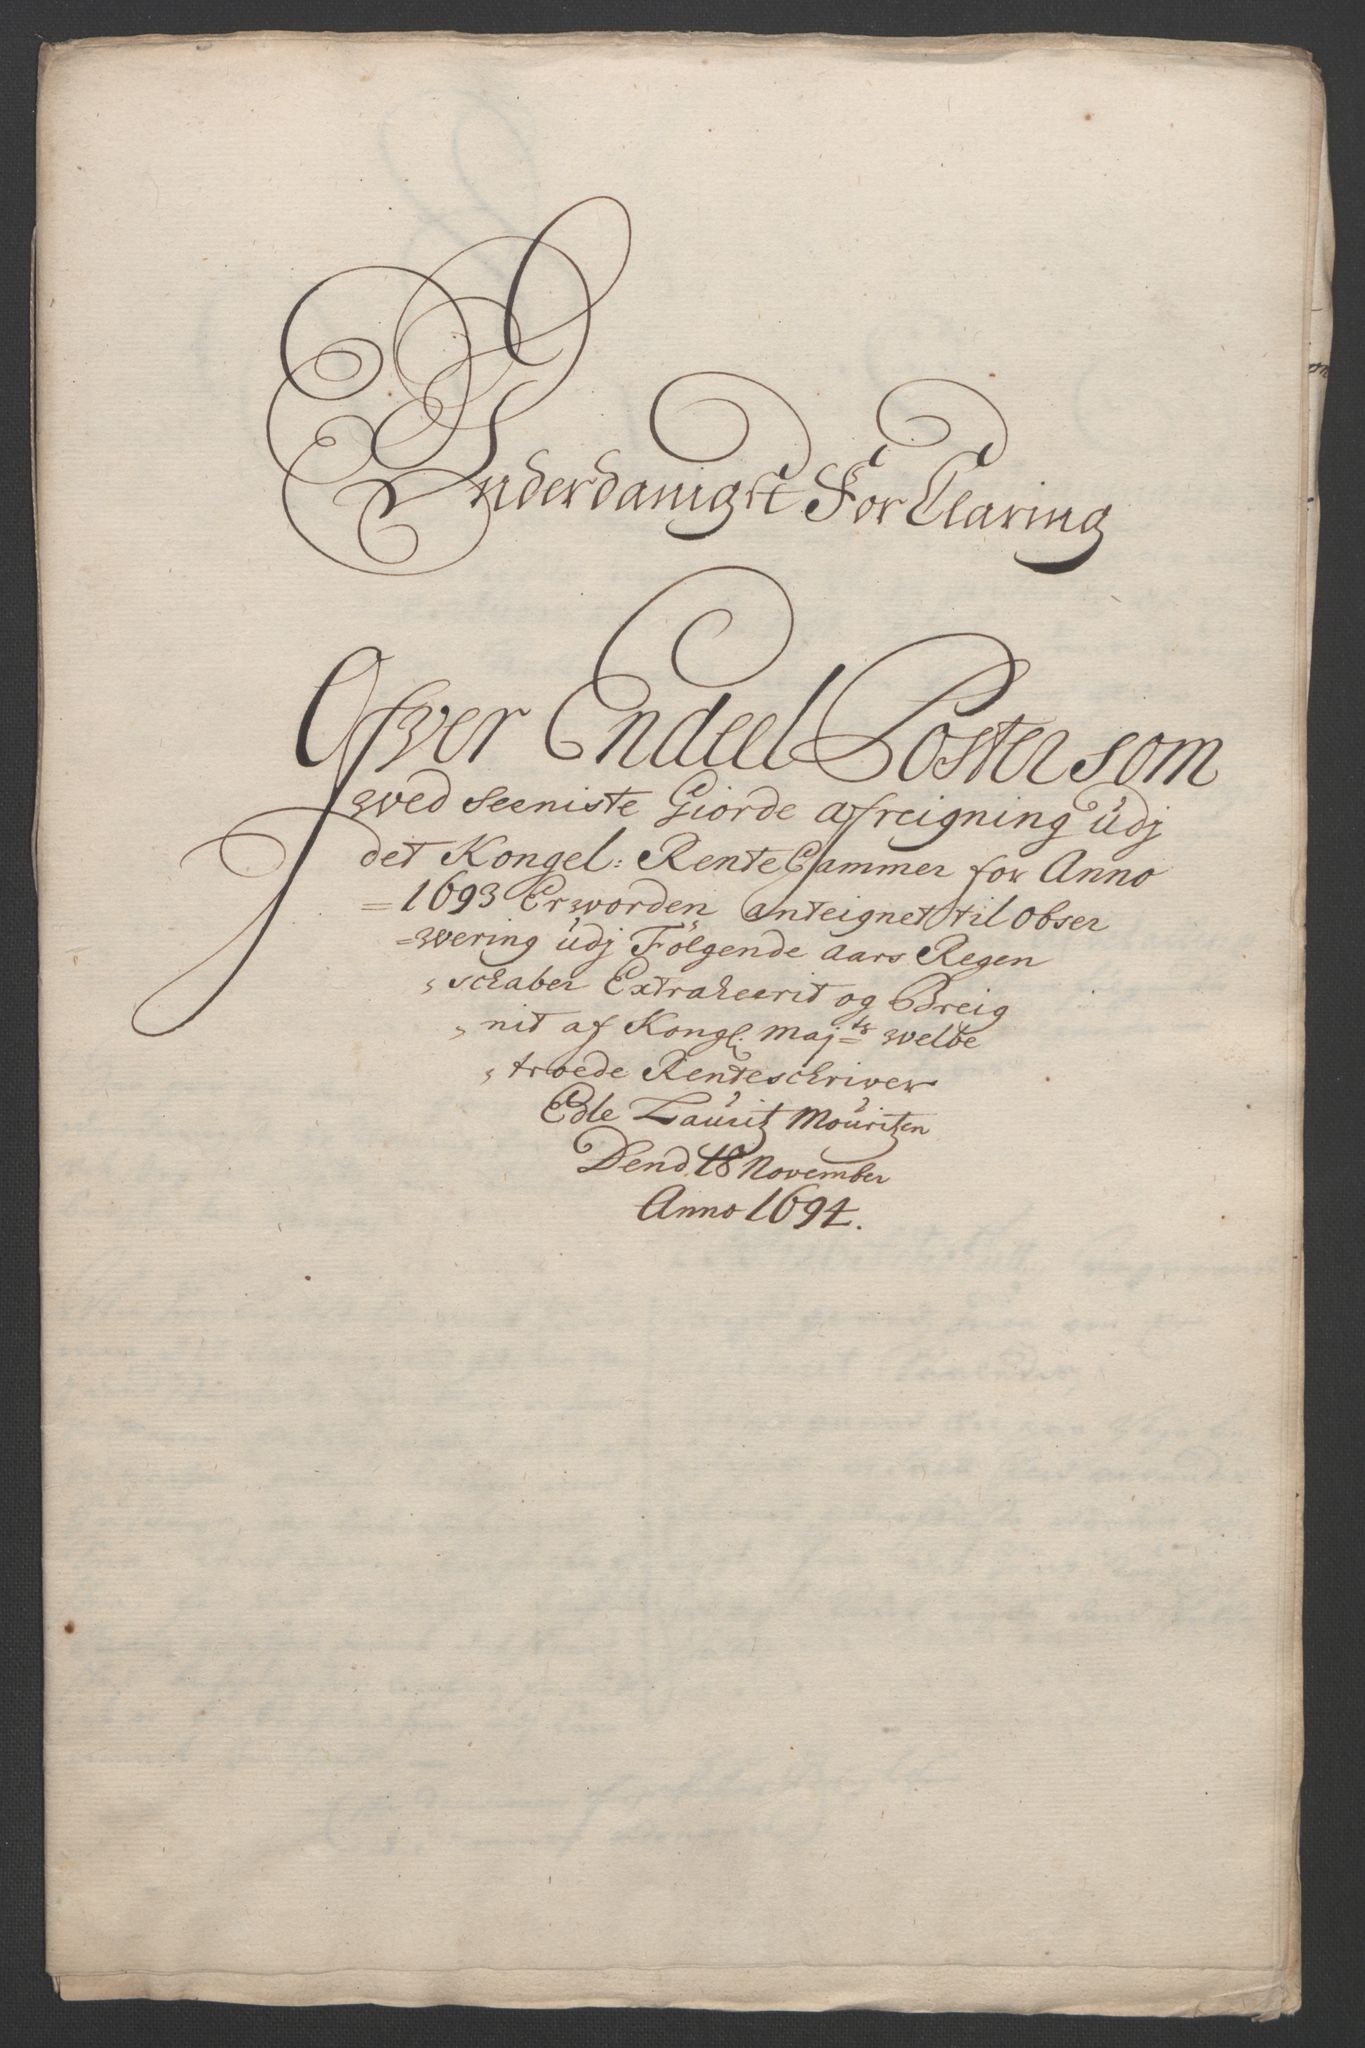 Underdanigst ForClaring
Ofwer Endeel Poster som
wed seeniste Giorde afreigning udj
det Kongel: RenteCammer for Anno
=1693 Erworden anteignet til obser
=wering udj Fölgende aars Regen
schaber Extraheerit og Breig
nit af Kongl: Maj:ts welbe
troede Renteschriwer
Edle Lauritz Mouritzen
Dend 18 November
Anno 1694.